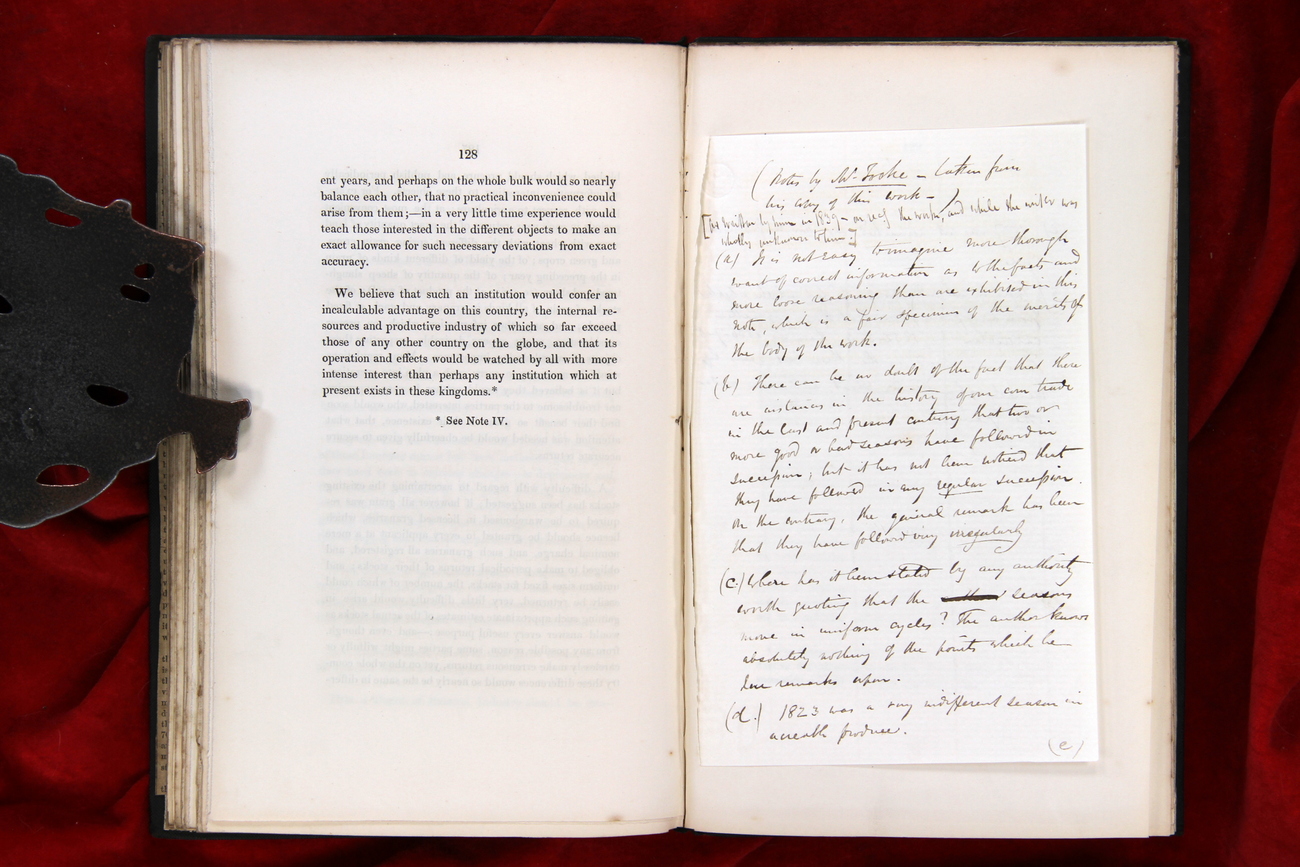 128
ent years, and perhaps on the whole bulk would so nearly
balance each other, that no practical inconvenience could
arise from them;—in a very little time experience would
teach those interested in the different objects to make an
exact allowance for such necessary deviations from exact
accuracy.
We believe that such an institution would confer an
incalculable advantage on this country, the internal re-
sources and productive industry of which so far exceed
those of any other country on the globe, and that its
operation and effects would be watched by all with more
intense interest than perhaps any institution which at
present exists in these kingdoms.*
* See Note IV.
(Notes by Mr. Tooke – taken from
his copy of this work – )
[ written by him in 1839 – on the work, and while the writer was
wholly unknown to him –]
(a) It is not easy to imagine more thorough
want of correct information as to the facts and
more loose reasoning than are exhibited in this
note, which is a fair specimen of the merits of
the body of the work.
(b) There can be no doubt of the fact that there
are instances in the history of our corn trade
in the last and present century that two or
more good or bad seasons have followed in
succession; but it has not been noticed that
they have followed in any regular succession.
On the contrary, the general remark has been
that they have followed very irregularly
(c.) Where has it been stated by any authority
worth quoting that the seasons
move in uniform cycles? The author knows
absolutely nothing of the points which he
here remarks upon.
(d.) 1823 was a very indifferent season in
acreable produce.
(e)